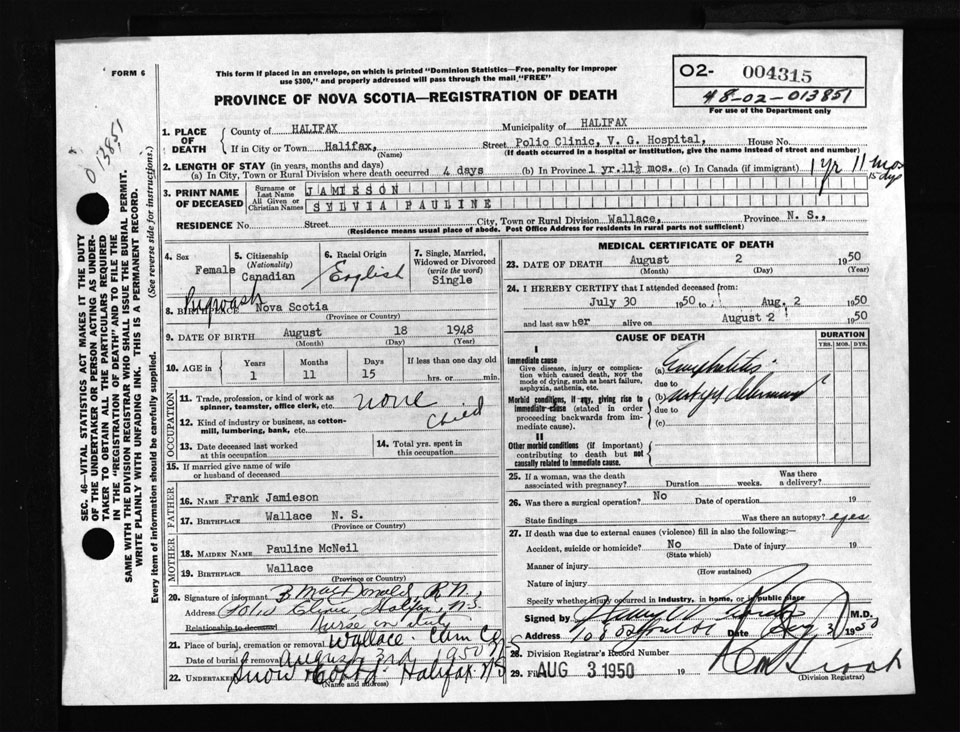 FORM 6
This form if placed in an envelope, on which is printed "Dominion Statistics—Free, penalty for improper
use $300," and properly addressed will pass through the mail "FREE"
PROVINCE OF NOVA SCOTIA—REGISTRATION OF DEATH
02- 004315
48-02-013851
For use of the Department only
013851
SEC. 46—VITAL STATISTICS ACT MAKES IT THE DUTY
OF THE UNDERTAKER OR PERSON ACTING AS UNDER-
TAKER TO OBTAIN ALL THE PARTICULARS REQUIRED
IN THE "REGISTRATION OF DEATH" AND TO FILE THE
SAME WITH THE DIVISION REGISTRAR WHO SHALL ISSUE THE BURIAL PERMIT.
WRITE PLAINLY WITH UNFADING INK. THIS IS A PERMANENT RECORD.
Every item of information should be carefully supplied. (See reverse side for instructions.)
1. PLACE OF DEATH
County of HALIFAX Municipality of HALIFAX
If in City or Town Halifax, (Name) Street Polio Clinic, V. G. Hospital, House No.
(If death occurred in a hospital or institution, give the name instead of street and number)
2. LENGTH OF STAY (in years, months and days)
(a) In City, Town or Rural Division where death occurred 4 days (b) In Province 1 yr.11½ mos. (c) In Canada (if immigrant) 1 yr 11 mos
15 dys
3. PRINT NAME OF DECEASED
Surname or Last Name JAMIESON
All Given or Christian Names SYLVIA PAULINE
RESIDENCE No. Street City, Town or Rural Division Wallace, Province N. S.,
(Residence means usual place of abode. Post Office Address for residents in rural parts not sufficient)
4. Sex Female
5. Citizenship (Nationality) Canadian
6. Racial Origin English
7. Single, Married, Widowed or Divorced (write the word) Single
Pugwash
8. BIRTHPLACE Nova Scotia
(Province or Country)
9. DATE OF BIRTH August 18 1948
(Month) (Day) (Year)
10. AGE IN Years 1 Months 11 Days 15 If less than one day old
hrs. or min.
OCCUPATION
11. Trade, profession, or kind of work as
spinner, teamster, office clerk, etc. none
12. Kind of industry or business, as cotton-
mill, lumbering, bank, etc. Child
13. Date deceased last worked
at this occupation
14. Total yrs. spent in
this occupation
15. If married give name of wife
or husband of deceased
FATHER
16. NAME Frank Jamieson
17. BIRTHPLACE Wallace N. S.
(Province or Country)
MOTHER
18. MAIDEN NAME Pauline McNeil
19. BIRTHPLACE Wallace
(Province or Country)
20. Signature of informant B MacDonald, R.N.,
Address Polio Clinic Halifax, N.S.
Relationship to deceased Nurse in
21. Place of burial, cremation or removal Wallace Cum Co N/S
Date of burial or removal August 3rd 1950
22. Undertaker Snow Halifax N/S
(Name and address)
MEDICAL CERTIFICATE OF DEATH
23. DATE OF DEATH August 2 1950
(Month) (Day) (Year)
24. I HEREBY CERTIFY that I attended deceased from:
July 30 1950 to Aug. 2 1950
and last saw her alive on August 2 1950
CAUSE OF DEATH
DURATION
YRS. MOS. DYS.
I
Immediate cause
Give disease, injury or complica-
tion which caused death, NOT the
mode of dying, such as heart failure,
asphyxia, asthenia, etc.
(a) Encephalitis
due to
Morbid conditions, if any, giving rise to
immediate cause (stated in order
proceeding backwards from im-
mediate cause).
(b)
due to
(c)
II
Other morbid conditions (if important)
contributing to death but not
causally related to immediate cause.
25. If a woman, was the death
associated with pregnancy? Duration weeks. Was there
a delivery?
26. Was there a surgical operation? No Date of operation 19
State findings Was there an autopsy? yes
27. If death was due to external causes (violence) fill in also the following:—
Accident, suicide or homicide? No Date of injury 19
(State which)
Manner of injury
(How sustained)
Nature of injury
Specify whether injury occurred in industry, in home, or in public place
Signed by M.D.
Address Date 1950
28. Division Registrar's Record Number
29. Filed AUG 3 1950 19
(Division Registrar)